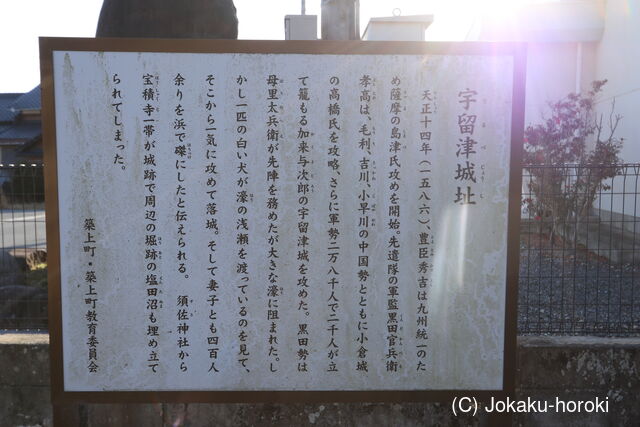 宇留津城址
天正十四年（一五八六）、豊臣秀吉は九州統一のた
め薩摩の島津氏攻めを開始。先遣隊の軍監黒田官兵衛
孝高は、毛利、吉川、小早川の中国勢とともに小倉城
の高橋氏を攻略、さらに軍勢二万八千人で二千人が立
て籠もる加来与次郎の宇留津城を攻めた。黒田勢は
母里太兵衛が先陣を務めたが大きな濠に阻まれた。し
かし一匹の白い犬が濠の浅瀬を渡っているのを見て、
そこから一気に攻めて落城。そして妻子とも四百人
余りを浜で磔にしたと伝えられる。 須佐神社から
宝積寺一帯が城跡で周辺の堀跡の塩田沼も埋め立て
られてしまった。
築上町・築上町教育委員会
(C) Jokaku-horoki